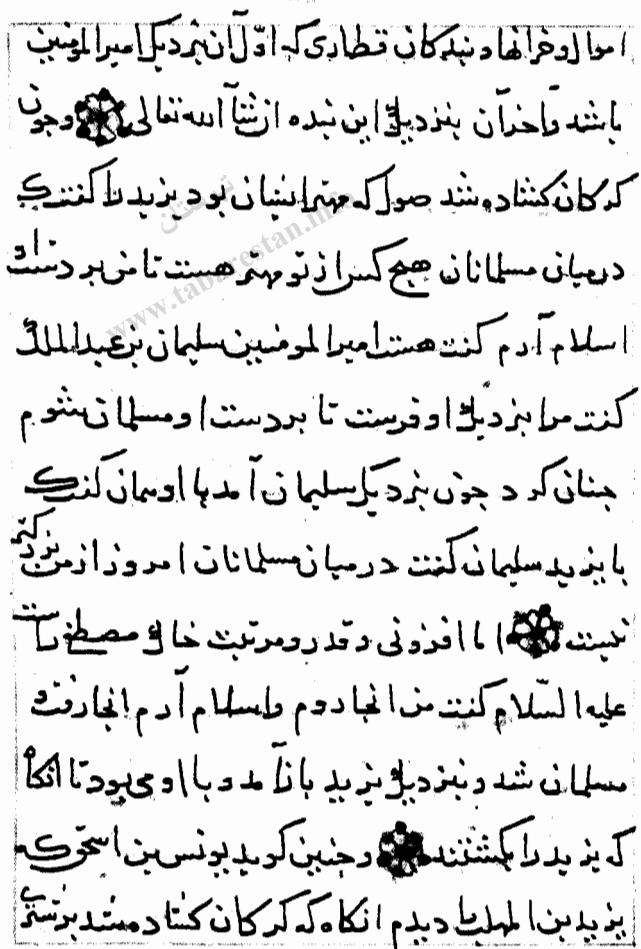 اموال و خزانها و بندکان قطاری که اوّل آن بنزدیک امیر المومنین
باشد و آخر آن بنزدیک این بنده ان شآ الله تعالی وجون
کرکان کشاده شد صول که مهتر ایشان بود یزید را کفت که
در میان مسلمانان هیچ کس از تو مهتر هست تا من بر دست او
اسلام آرم کفت هست امیر المومنین سلیمان بن عبد الملک
کفت مرا بنزدیک او فرست تا بر دست او مسلمان شوم
جنان کرد جون بنزدیک سلیمان آمد با او همان کفت که
با یزید سلیمان کفت در میان مسلمانان امروز از من بزرکتر
نیست اما افزونی و قدر و مرتبت خاک مصطفی راست
علیه السّلام کفت من انجا روم و اسلام آرم انجا رفت و
مسلمان شد و بنزدیک یزید بازآمد و با او می بود تا انکاه
که یزید را بکشتند و جنین کوید یونس بن اسحق که
یزید بن المهلب را دیدم انکاه که کرکان کشاده شد بر
www.tabarestan.info
تبرستان